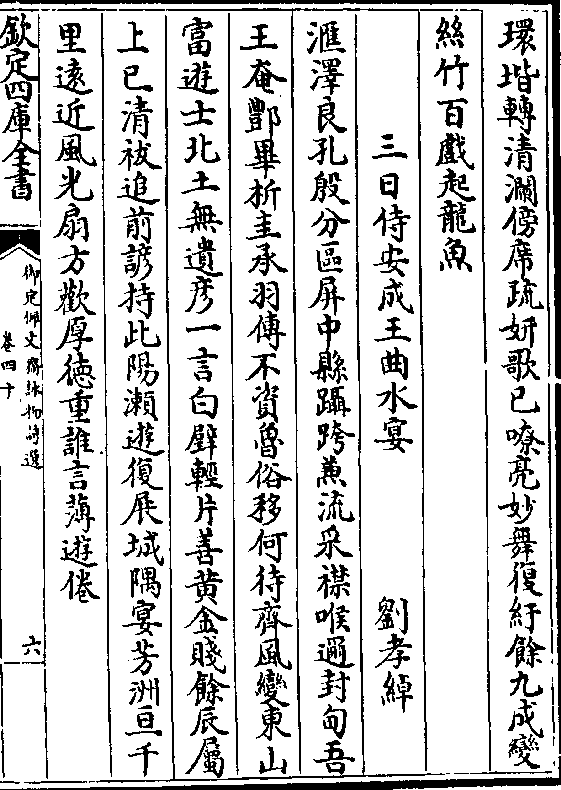 環堦轉清瀾傍席疏妍歌已嘹亮妙舞復紆餘九成變
絲竹百戲起龍魚
三日侍安成王曲水宴 劉孝綽
滙澤良孔殷分區屏中縣躡跨兼流采襟喉邇封甸吾
王奄酆畢析圭承羽傳不資魯俗移何待齊風變東山
富遊士北土無遺彦一言白璧輕片善黄金賤餘辰屬
上巳清祓追前諺持此陽瀨遊復展城隅宴芳洲亘千
里遠近風光扇方歡厚徳重誰言薄遊倦
欽定四庫全書
御定佩文齋詠物詩選
卷四十
六